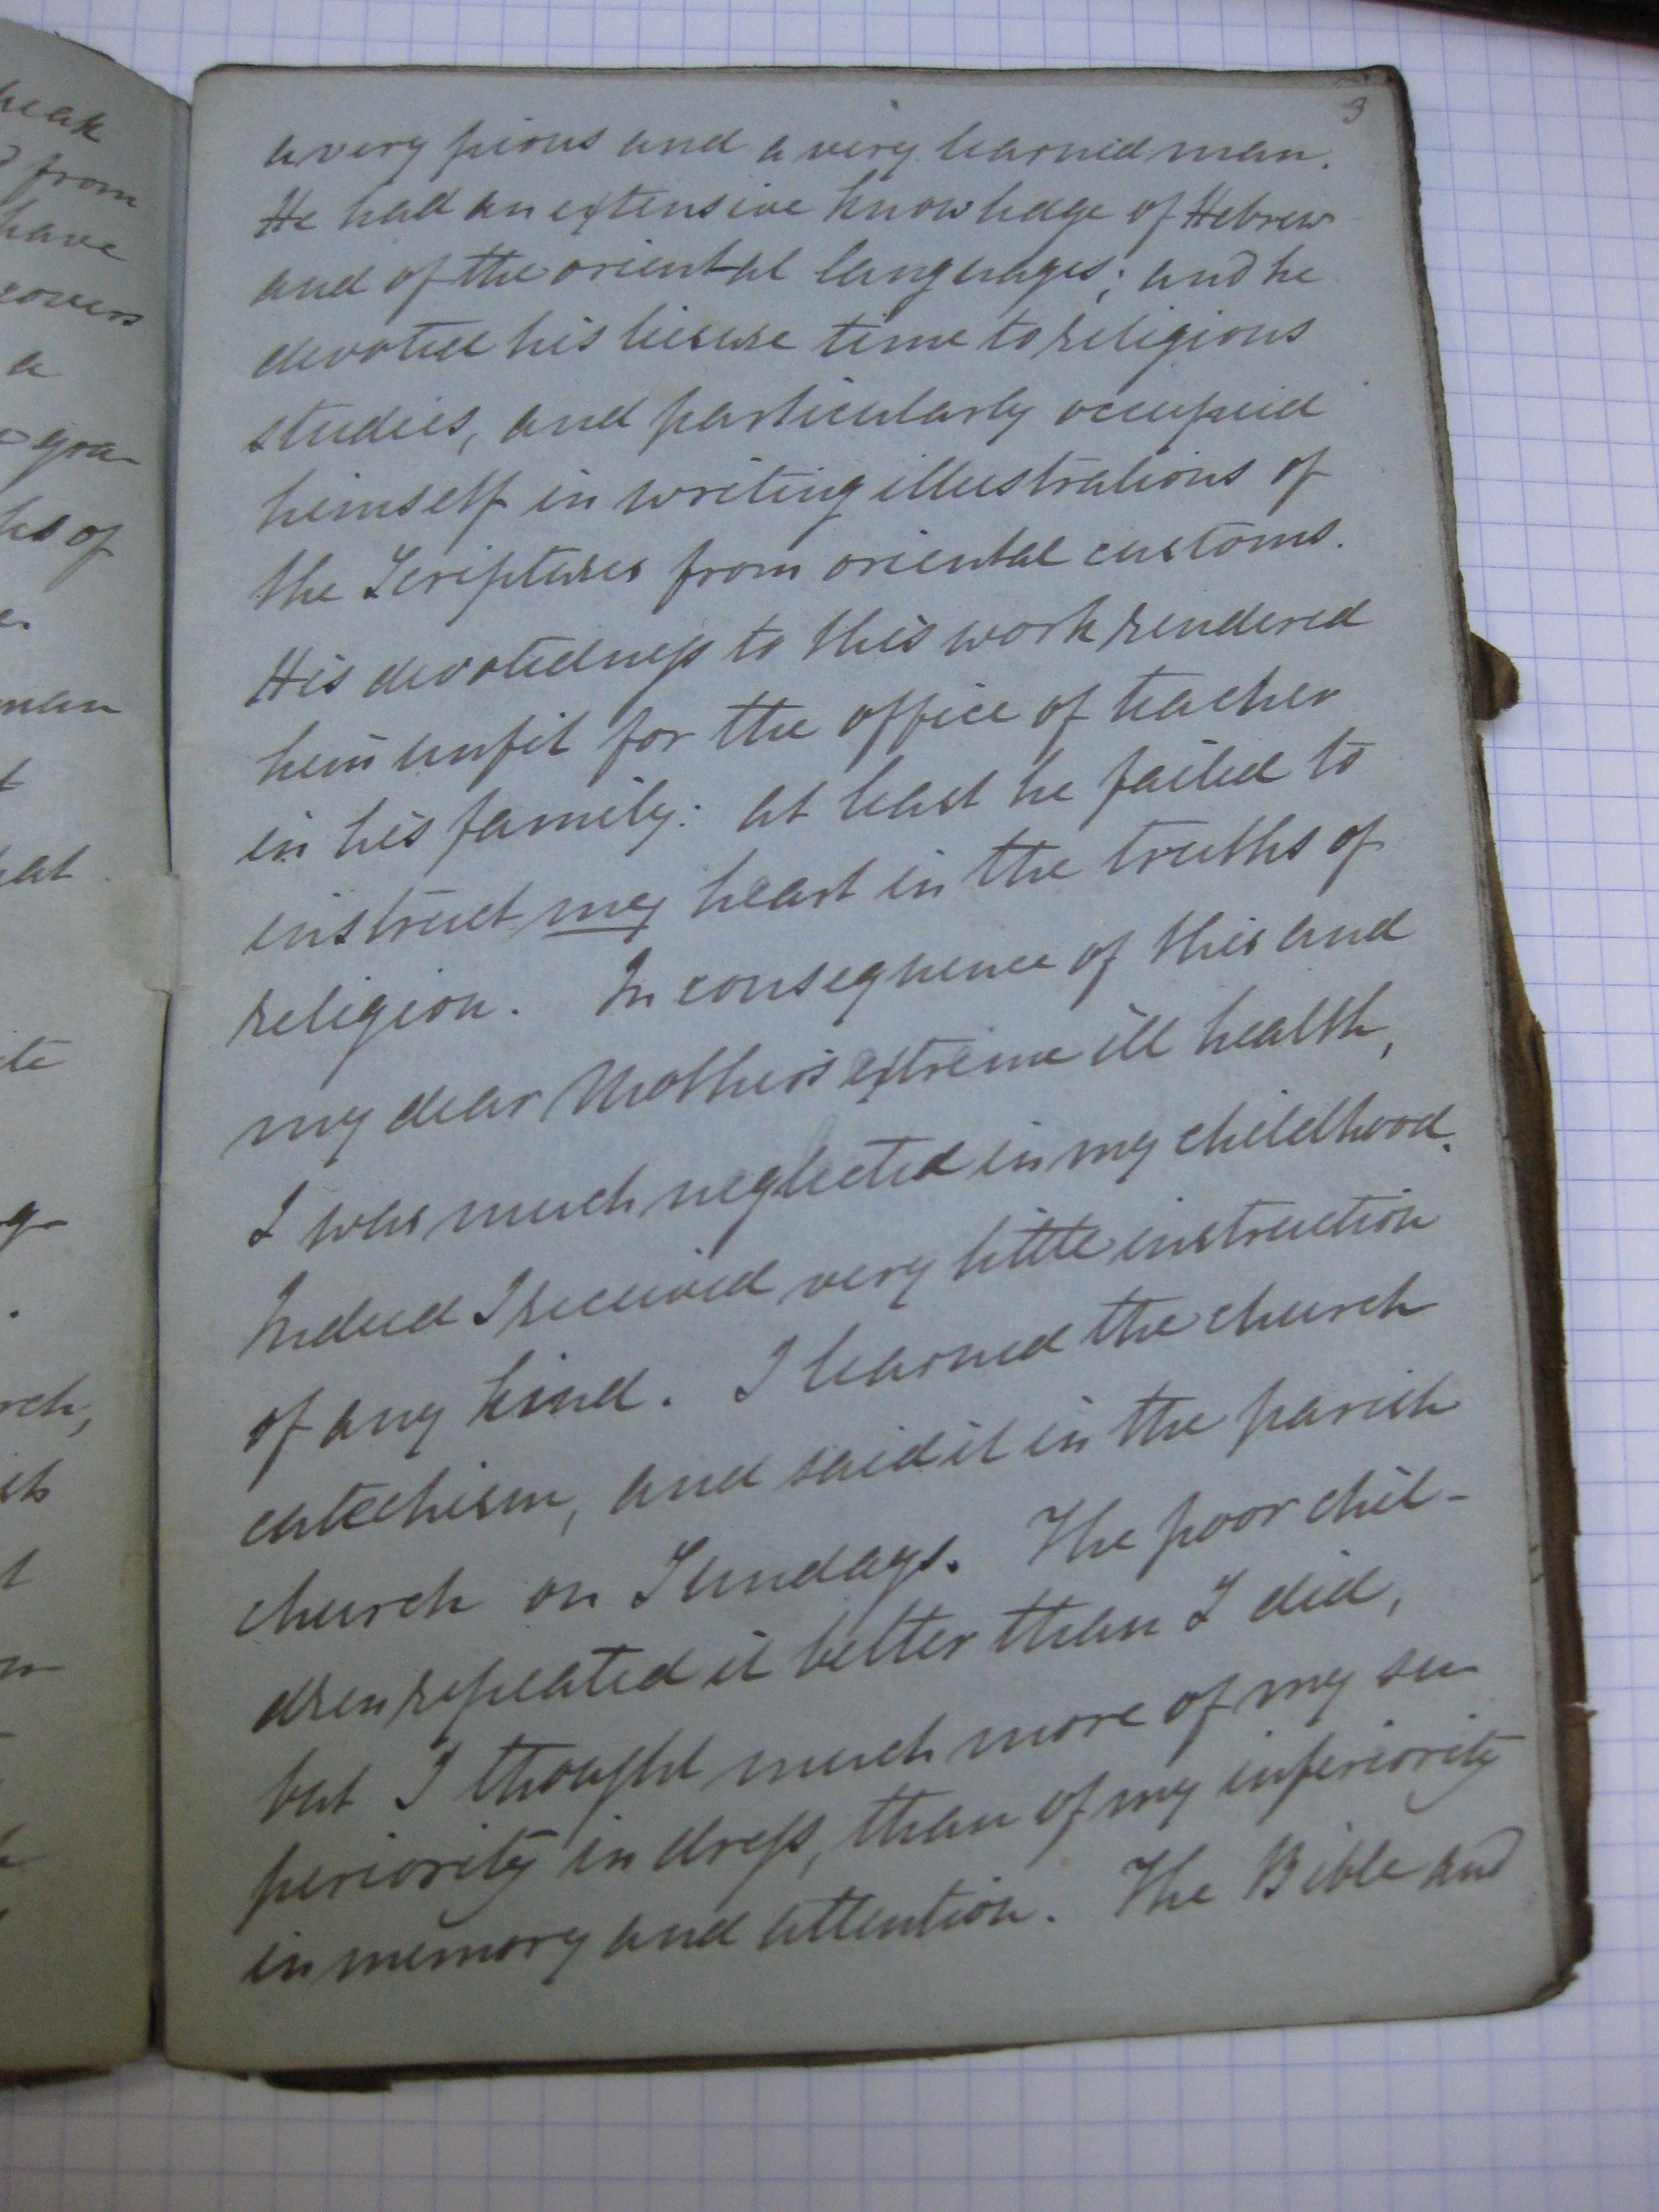 heak
from
have
covers
a
gra-
hs of
man
hat
ite
rch,
3
a very pious and a very learned man.
He had an extensive knowledge of Hebrew
and of the oriental languages; and he
devoted his liesure time to religious
studies, and particularly occupied
himself in writing illustrations of
the Scriptures from oriental customs.
His devotedness to this work rendered
him unfit for the office of teacher
in his family: at least he failed to
instruct my heart in the truths of
religion. In consequence of this and
my dear Mother's extreme ill health,
I was much neglected in my childhood.
Indeed I received very little instruction
of any kind. I learned the church
catechism, and said it in the parish
church on Sundays. The poor chil-
dren repeated it better than I did,
but I thought much more of my su-
periority in dress, than of my inferiority
in memory and attention. The Bible and